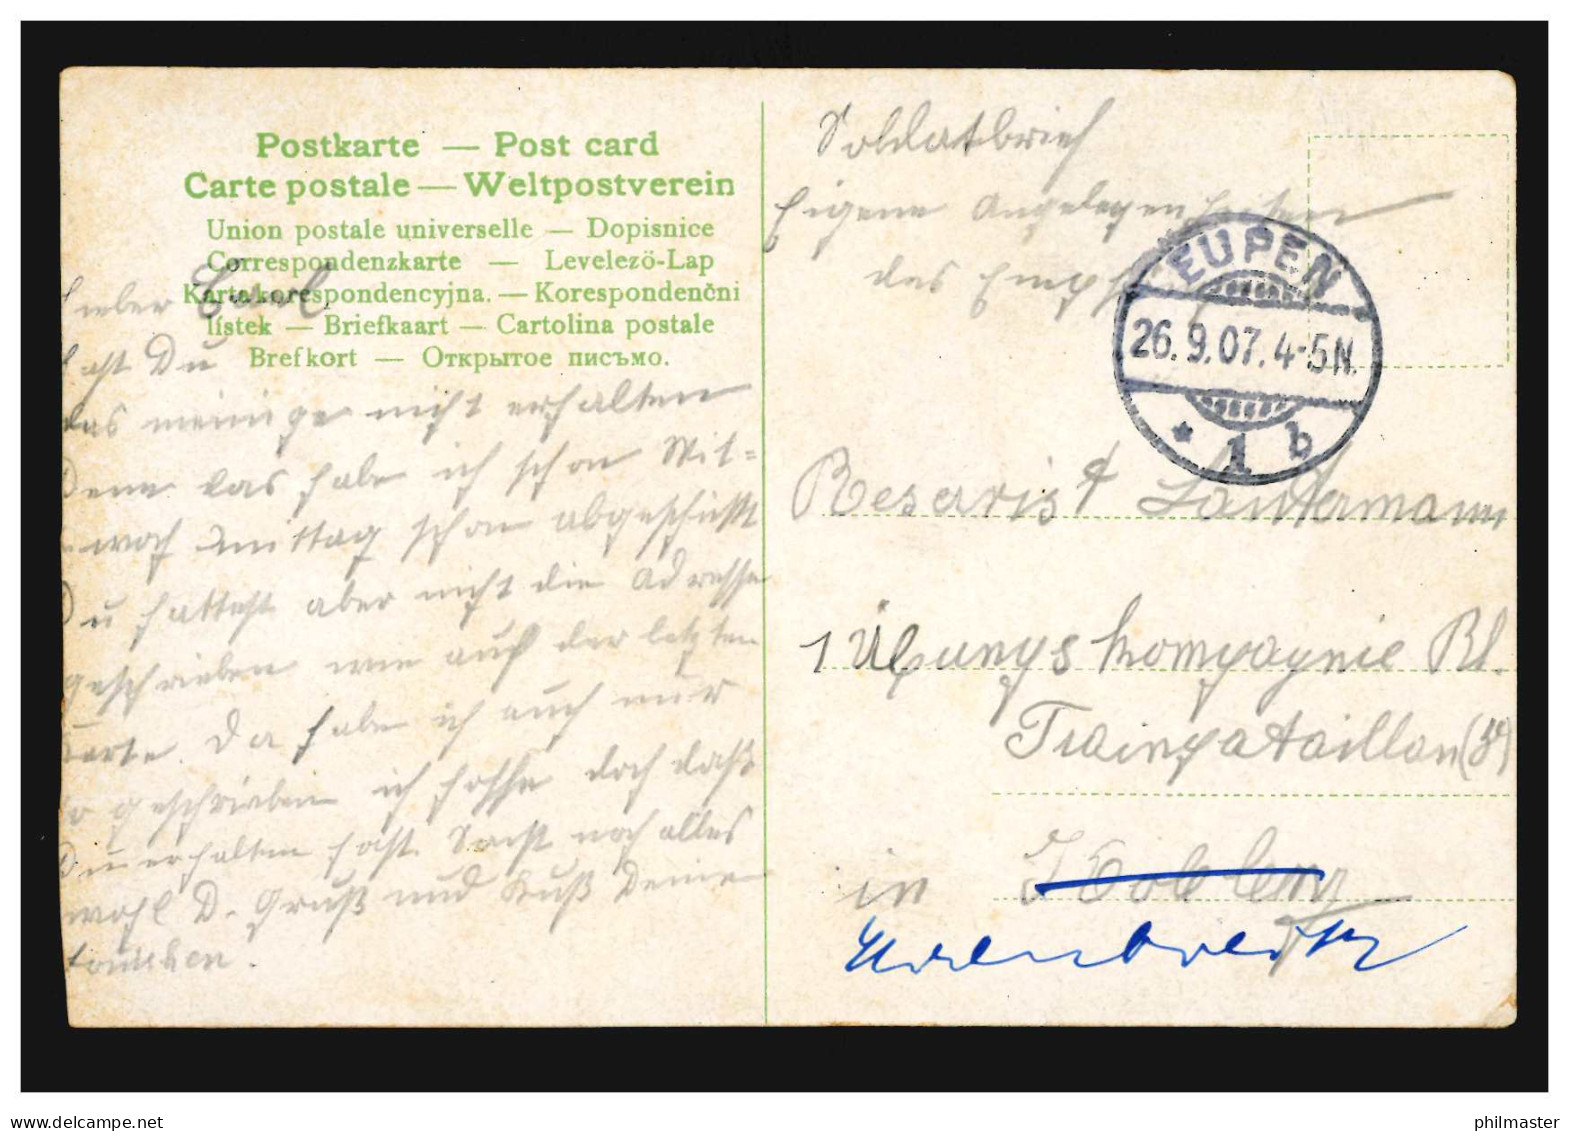 Postkarte — Post card
Carte postale — Weltpostverein
Union postale universelle — Dopisnice
Correspondenzkarte — Levelezö-Lap
Karta korespondencyjna. — Korespondenčni
lístek — Briefkaart — Cartolina postale
Brefkort — Открытое письмо.
Lieber Carl
hast Du
das meinige nicht erhalten
Denn das habe ich schon Mit=
woch Mittag schon abgeschickt
Du hattest aber nicht die Adresse
geschrieben wie auf der letzten
Karte. Da habe ich auch nur
so geschrieben ich hoffe doch daß
Du erhalten hast. Sonst noch alles
wohl D. Gruß und Kuß Deine
Soldatbrief
Eigene Angelegenheiten
des Empf
EUPEN
26.9.07.4-5N.
* 1 b
Reservist Lantermann
1 Übungs Kompagnie Rh.
Trainbataillon (8)
in Coblenz
Ehrenbreitst
delcampe.net
philmaster